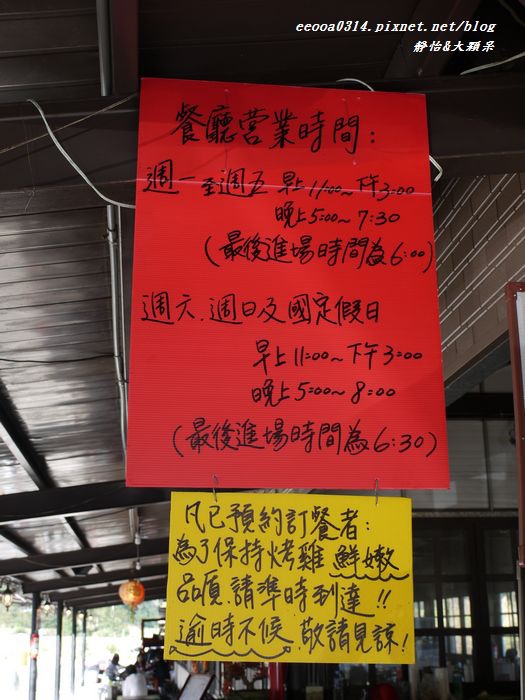 eeooa0314.pixnet.net/blog
靜怡&大顆呆
餐廳營業時間:
週一至週五 早上11:00~下午3:00
晚上5:00~7:30
(最後進場時間為6:00)
週六.週日及國定假日
早上11:00~下午3:00
晚上5:00~8:00
(最後進場時間為6:30)
凡已預約訂餐者:
為了保持烤雞鮮嫩
品質.請準時到達!!
逾時不候.敬請見諒!